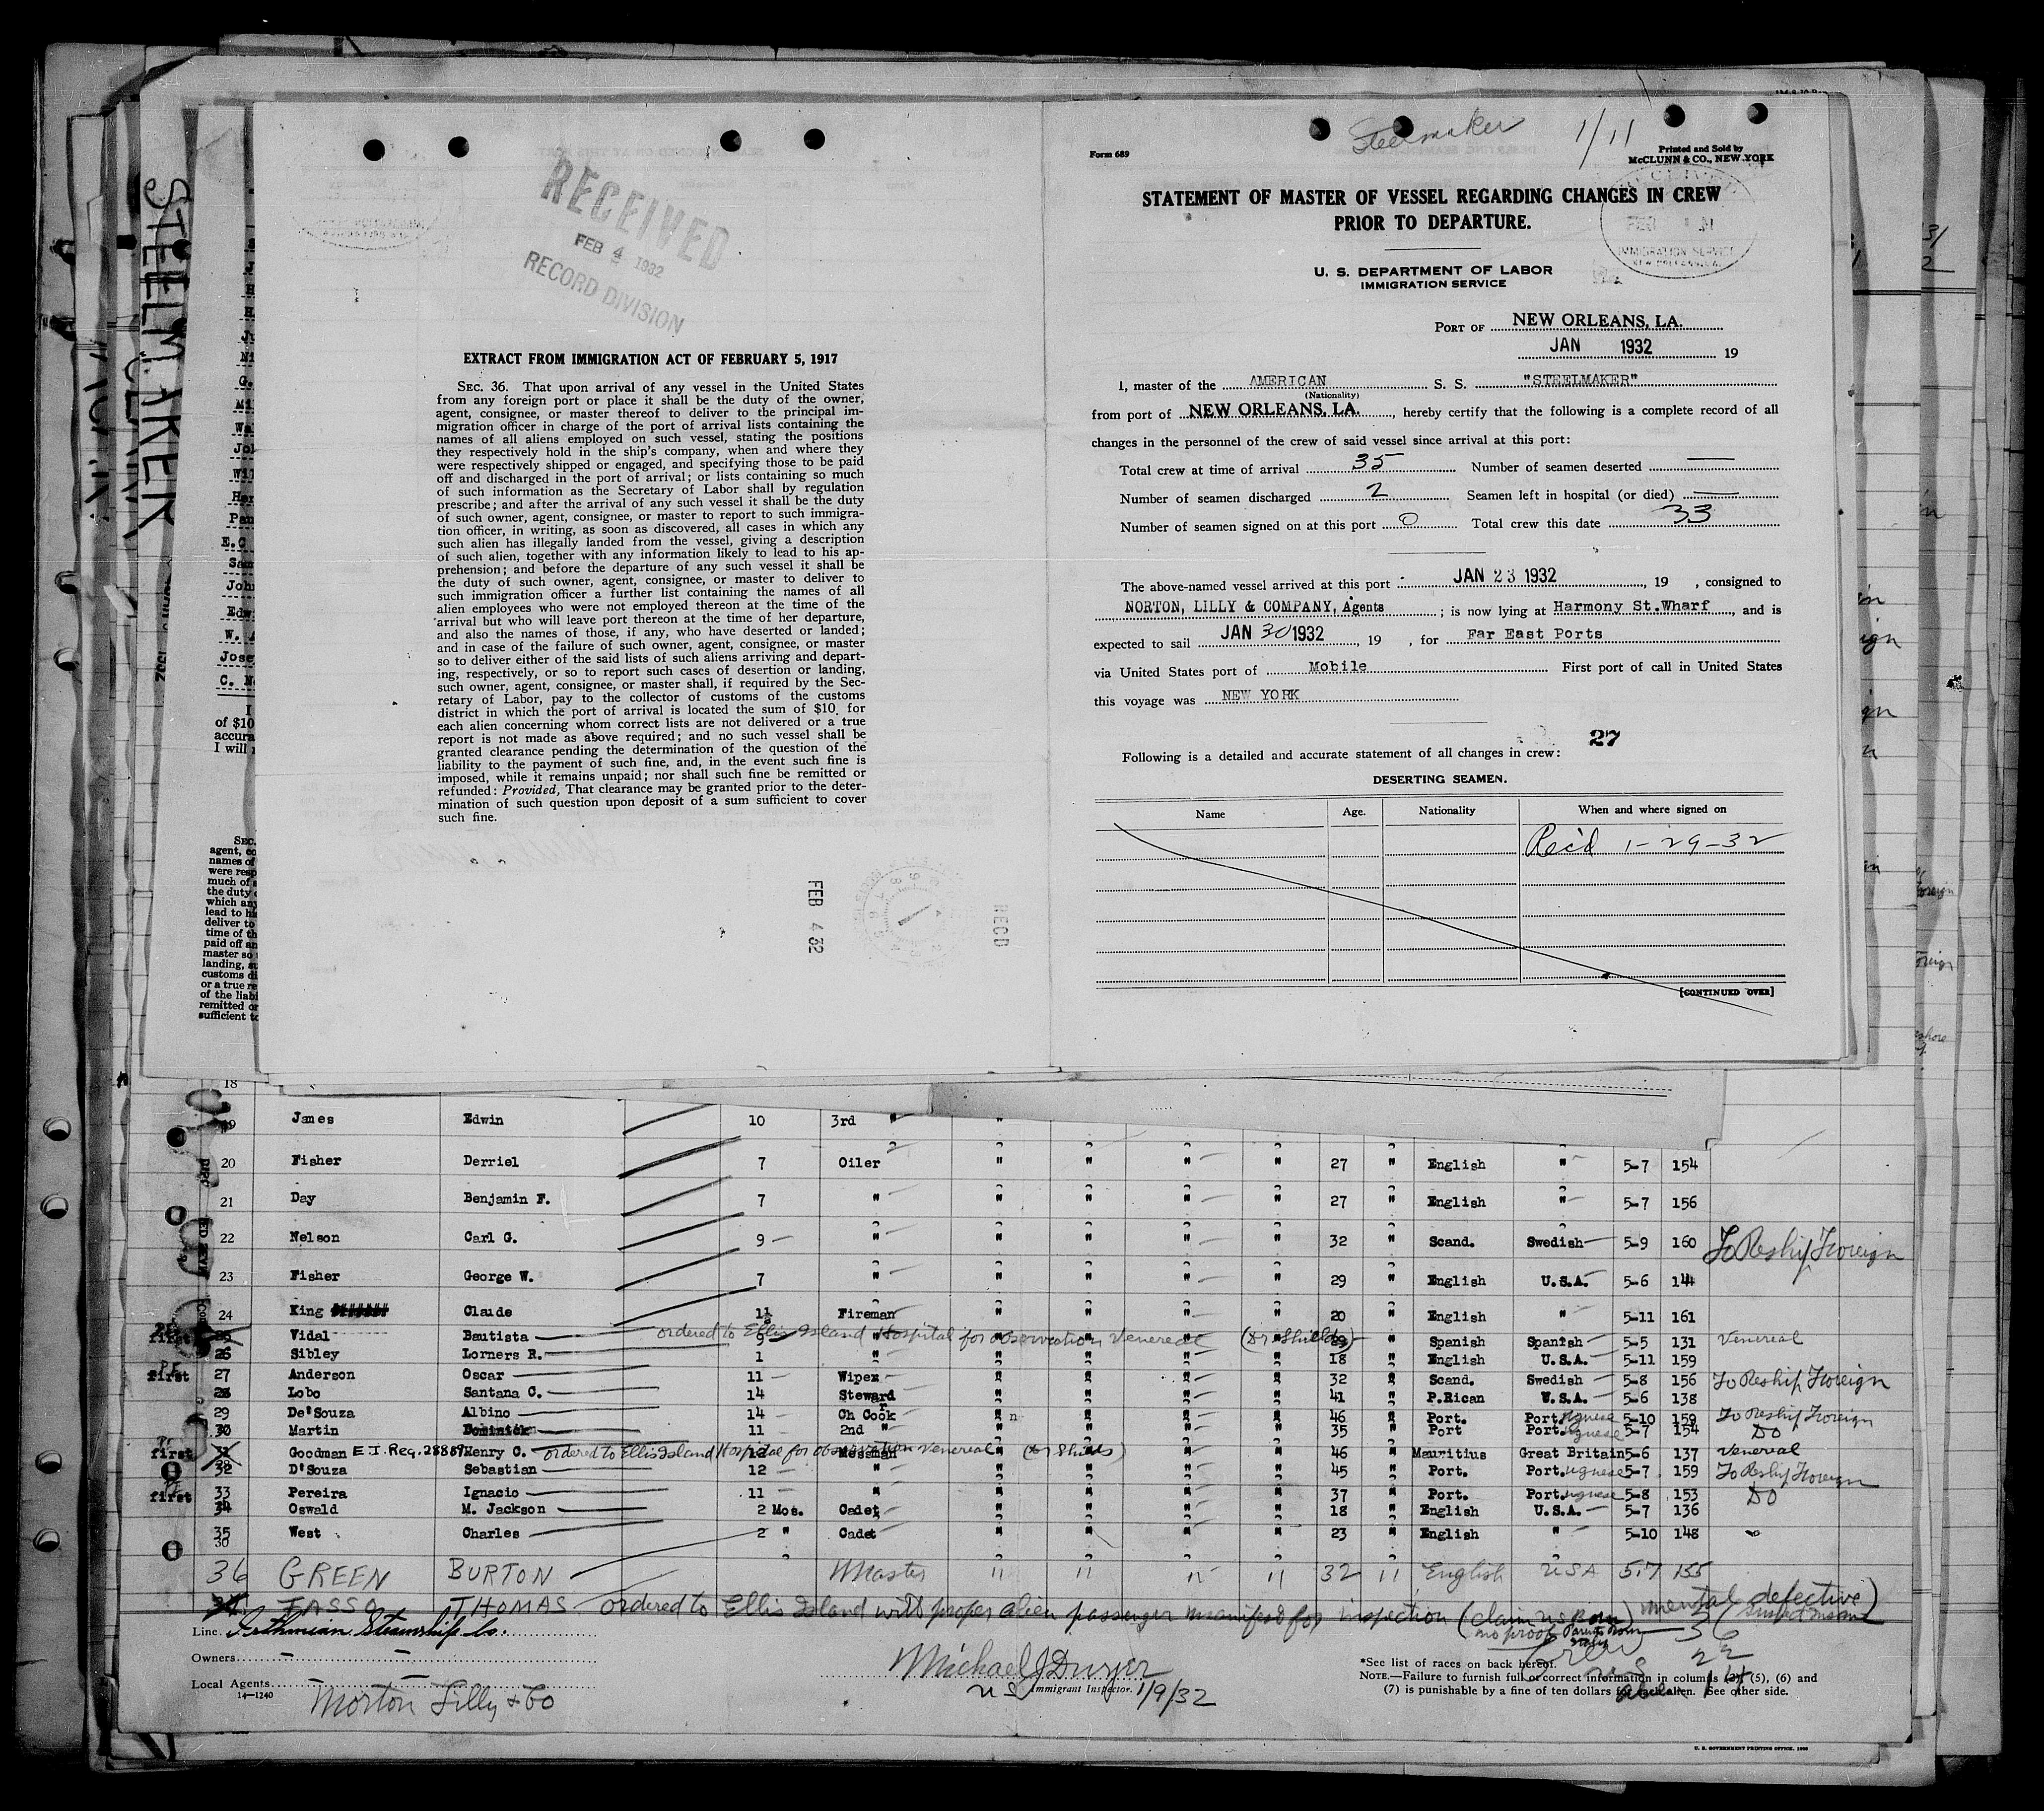 Steelmaker 1/11
Form 689
Printed and Sold by
McCLUNN & CO., NEW YORK
STATEMENT OF MASTER OF VESSEL REGARDING CHANGES IN CREW
PRIOR TO DEPARTURE.
IMMIGRATION SERVICE
U. S. DEPARTMENT OF LABOR
IMMIGRATION SERVICE
PORT OF NEW ORLEANS, LA.
JAN 1932 19
I, master of the AMERICAN S. S. "STEELMAKER"
(Nationality)
from port of NEW ORLEANS, LA., hereby certify that the following is a complete record of all
changes in the personnel of the crew of said vessel since arrival at this port:
Total crew at time of arrival 35 Number of seamen deserted —
Number of seamen discharged 2 Seamen left in hospital (or died) —
Number of seamen signed on at this port 0 Total crew this date 33
The above-named vessel arrived at this port JAN 23 1932, 19 , consigned to
NORTON, LILLY & COMPANY, Agents ; is now lying at Harmony St. Wharf, and is
expected to sail JAN 30 1932, 19 , for Far East Ports
via United States port of Mobile First port of call in United States
this voyage was NEW YORK
27
Following is a detailed and accurate statement of all changes in crew:
DESERTING SEAMEN.
Name Age. Nationality When and where signed on
Rec'd 1-29-32
[CONTINUED OVER]
RECEIVED
FEB 4 1932
RECORD DIVISION
EXTRACT FROM IMMIGRATION ACT OF FEBRUARY 5, 1917
SEC. 36. That upon arrival of any vessel in the United States
from any foreign port or place it shall be the duty of the owner,
agent, consignee, or master thereof to deliver to the principal im-
migration officer in charge of the port of arrival lists containing the
names of all aliens employed on such vessel, stating the positions
they respectively hold in the ship's company, when and where they
were respectively shipped or engaged, and specifying those to be paid
off and discharged in the port of arrival; or lists containing so much
of such information as the Secretary of Labor shall by regulation
prescribe; and after the arrival of any such vessel it shall be the duty
of such owner, agent, consignee, or master to report to such immigra-
tion officer, in writing, as soon as discovered, all cases in which any
such alien has illegally landed from the vessel, giving a description
of such alien, together with any information likely to lead to his ap-
prehension; and before the departure of any such vessel it shall be
the duty of such owner, agent, consignee, or master to deliver to
such immigration officer a further list containing the names of all
alien employees who were not employed thereon at the time of the
arrival but who will leave port thereon at the time of her departure,
and also the names of those, if any, who have deserted or landed;
and in case of the failure of such owner, agent, consignee, or master
so to deliver either of the said lists of such aliens arriving and depart-
ing, respectively, or so to report such cases of desertion or landing,
such owner, agent, consignee, or master shall, if required by the Sec-
retary of Labor, pay to the collector of customs of the customs
district in which the port of arrival is located the sum of $10 for
each alien concerning whom correct lists are not delivered or a true
report is not made as above required; and no such vessel shall be
granted clearance pending the determination of the question of the
liability to the payment of such fine, and, in the event such fine is
imposed, while it remains unpaid; nor shall such fine be remitted or
refunded: Provided, That clearance may be granted prior to the deter-
mination of such question upon deposit of a sum sufficient to cover
such fine.
FEB 4 32
RECD
STEELMAKER
18
19 James Edwin 10 3rd " "
20 Fisher Derriel 7 Oiler " " " " 27 " English " 5-7 154
21 Day Benjamin F. 7 " " " " " 27 " English " 5-7 156
22 Nelson Carl G. 9 " " " " " 32 " Scand. Swedish 5-9 160 To Reship Foreign
23 Fisher George W. 7 " " " " " 29 " English U.S.A. 5-6 144
24 King Claude 11 Fireman " " " " 20 " English " 5-11 161
first 25 Vidal Bautista ordered to Ellis Island Hospital for observation Venereal (Dr Shields) 39 " Spanish Spanish 5-5 131 Venereal
26 Sibley Lorners R. 1 " " " " " 18 " English U.S.A. 5-11 159
first 27 Anderson Oscar 11 Wiper " " " " 32 " Scand. Swedish 5-8 156 To Reship Foreign
28 Lobo Santana C. 14 Steward " " " " 41 " P.Rican U.S.A. 5-6 138
29 De'Souza Albino 14 Ch Cook " n " " " 46 " Port. Portuguese 5-10 159 To Reship Foreign
30 Martin Dominick 11 2nd " " " " " 35 " Port Portuguese 5-7 154 DO
first 31 Goodman E.I. Reg. 28889 Henry C. ordered to Ellis Island Hospital for observation Venereal (Dr Shields) 12 Messman 46 " Mauritius Great Britain 5-6 137 Venereal
32 D'Souza Sebastian 12 " " " " " 45 " Port. Portuguese 5-7 159 To Reship Foreign
first 33 Pereira Ignacio 11 " " " " " 37 " Port. Portuguese 5-8 153 DO
34 Oswald M. Jackson 2 Mos. Cadet " " " " 18 " English U.S.A. 5-7 136
35 West Charles 2 " Cadet " " " " 23 " English " 5-10 148
30
36 GREEN BURTON Master " " " " 32 " English USA 5.7 155
TASSO THOMAS ordered to Ellis Island with proper alien passenger manifest for inspection (claim US Born no proof Parents from Italy) mental defective)
Line Isthmian Steamship Co.
Owners
Local Agents Norton Lilly & Co
14—1240
Michael J Dwyer
US Immigrant Inspector. 1/9/32
36
22
*See list of races on back hereof.
NOTE.—Failure to furnish full or correct information in columns (2), (5), (6) and
(7) is punishable by a fine of ten dollars for each alien. See other side.
U. S. GOVERNMENT PRINTING OFFICE. 1930